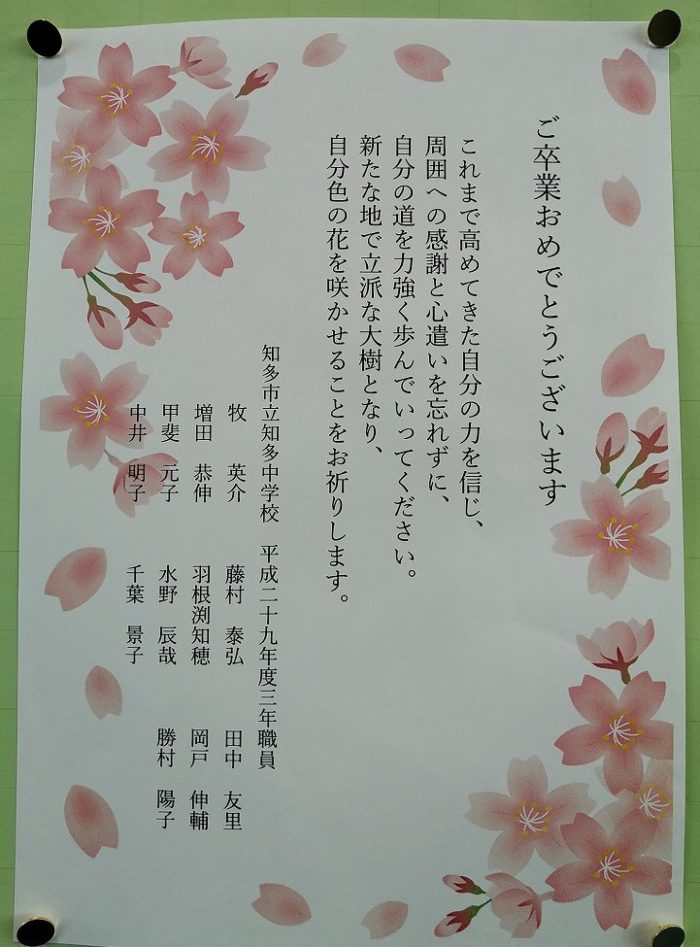 ご卒業おめでとうございます
これまで高めてきた自分の力を信じ、
周囲への感謝と心遣いを忘れずに、
自分の道を力強く歩んでいってください。
新たな地で立派な大樹となり、
自分色の花を咲かせることをお祈りします。
知多市立知多中学校 平成二十九年度三年職員
牧 英介 藤村 泰弘 田中 友里
増田 恭伸 羽根渕知穂 岡戸 伸輔
甲斐 元子 水野 辰哉 勝村 陽子
中井 明子 千葉 景子